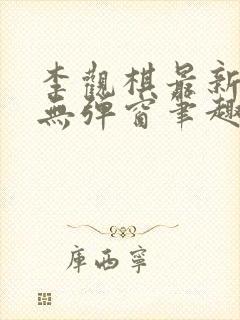 李觀棋最新
無彈窗筆趣
庫西寧